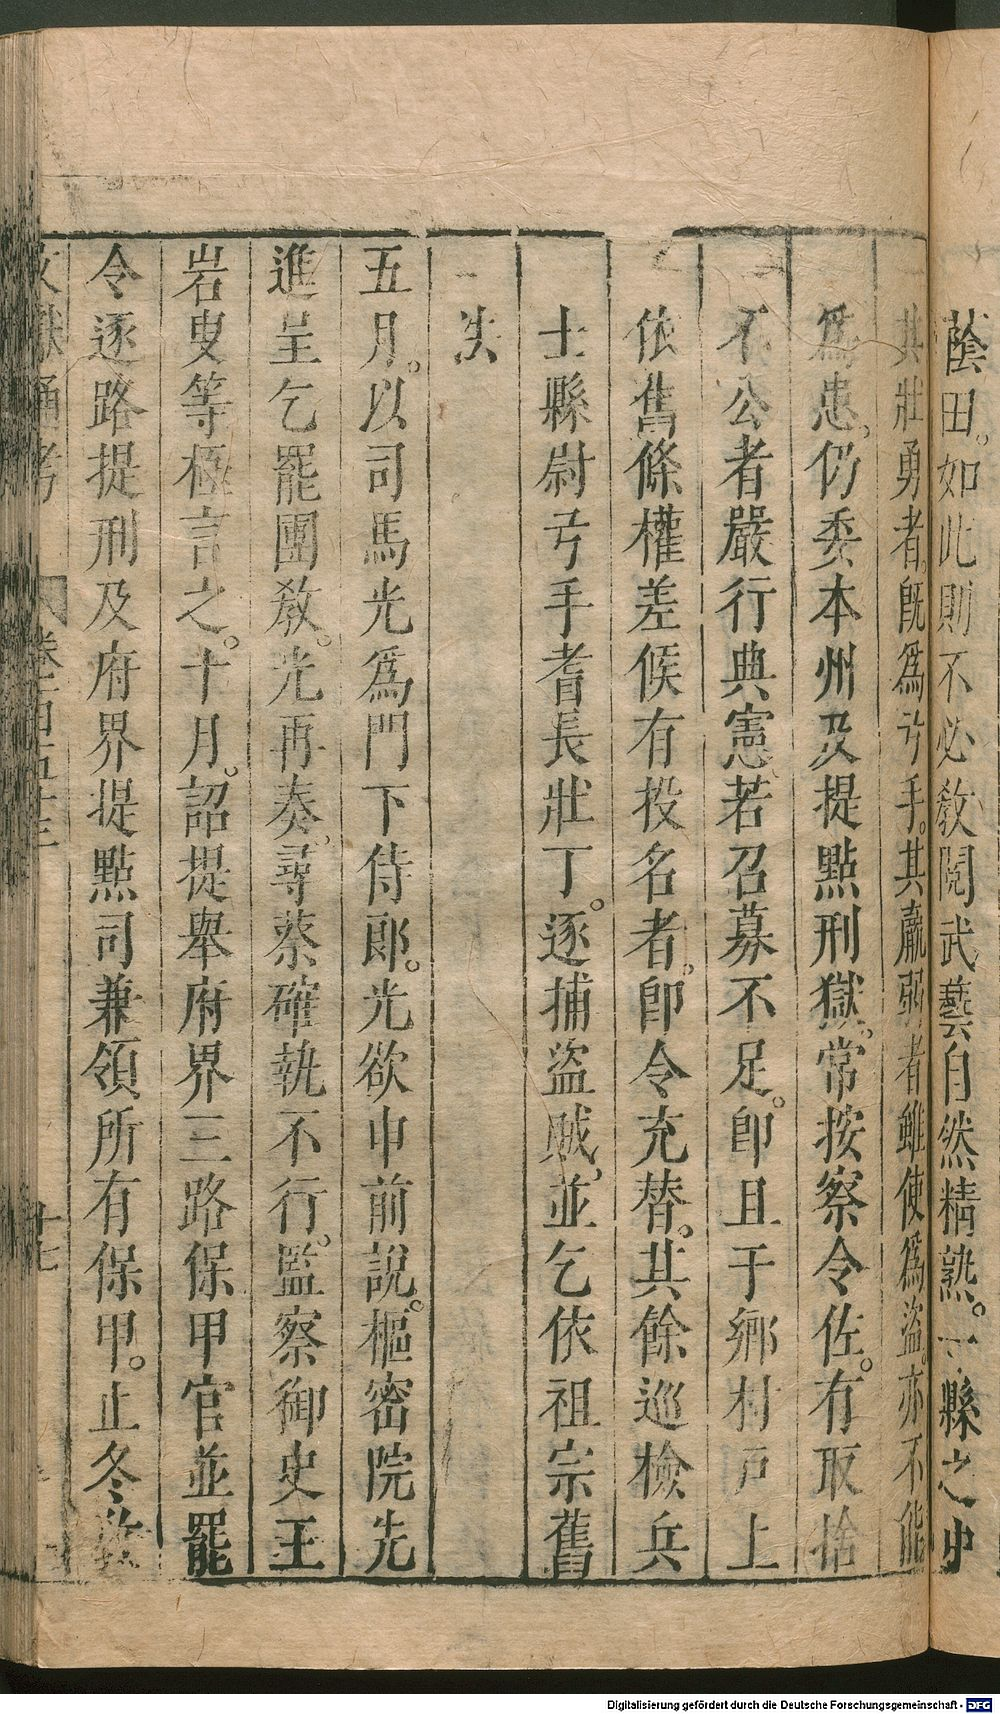 蔭田。如此則不必敎閱武藝自然精熟。一縣之中
其壯勇者。旣爲弓手。其羸弱者雖使爲盜。亦不能
爲患。仍委本州及提點刑獄。常按察令佐。有取捨
不公者嚴行典憲。若召募不足。卽且于鄉村戸上
依舊條權差候有投名者。卽令充替。其餘巡檢兵
士縣尉弓手耆長壯丁。逐捕盜賊。並乞依祖宗舊
法
五月。以司馬光爲門下侍郞。光欲申前說。樞密院先
進呈乞罷團敎。光再奏。尋蔡確執不行。監察御史王
岩叟等極言之。十月。詔提舉府界三路保甲官並罷
令逐路提刑及府界提點司兼領所有保甲。止冬敎
文獻通考 卷一百五十三 十七
Digitalisierung gefördert durch die Deutsche Forschungsgemeinschaft - DFG